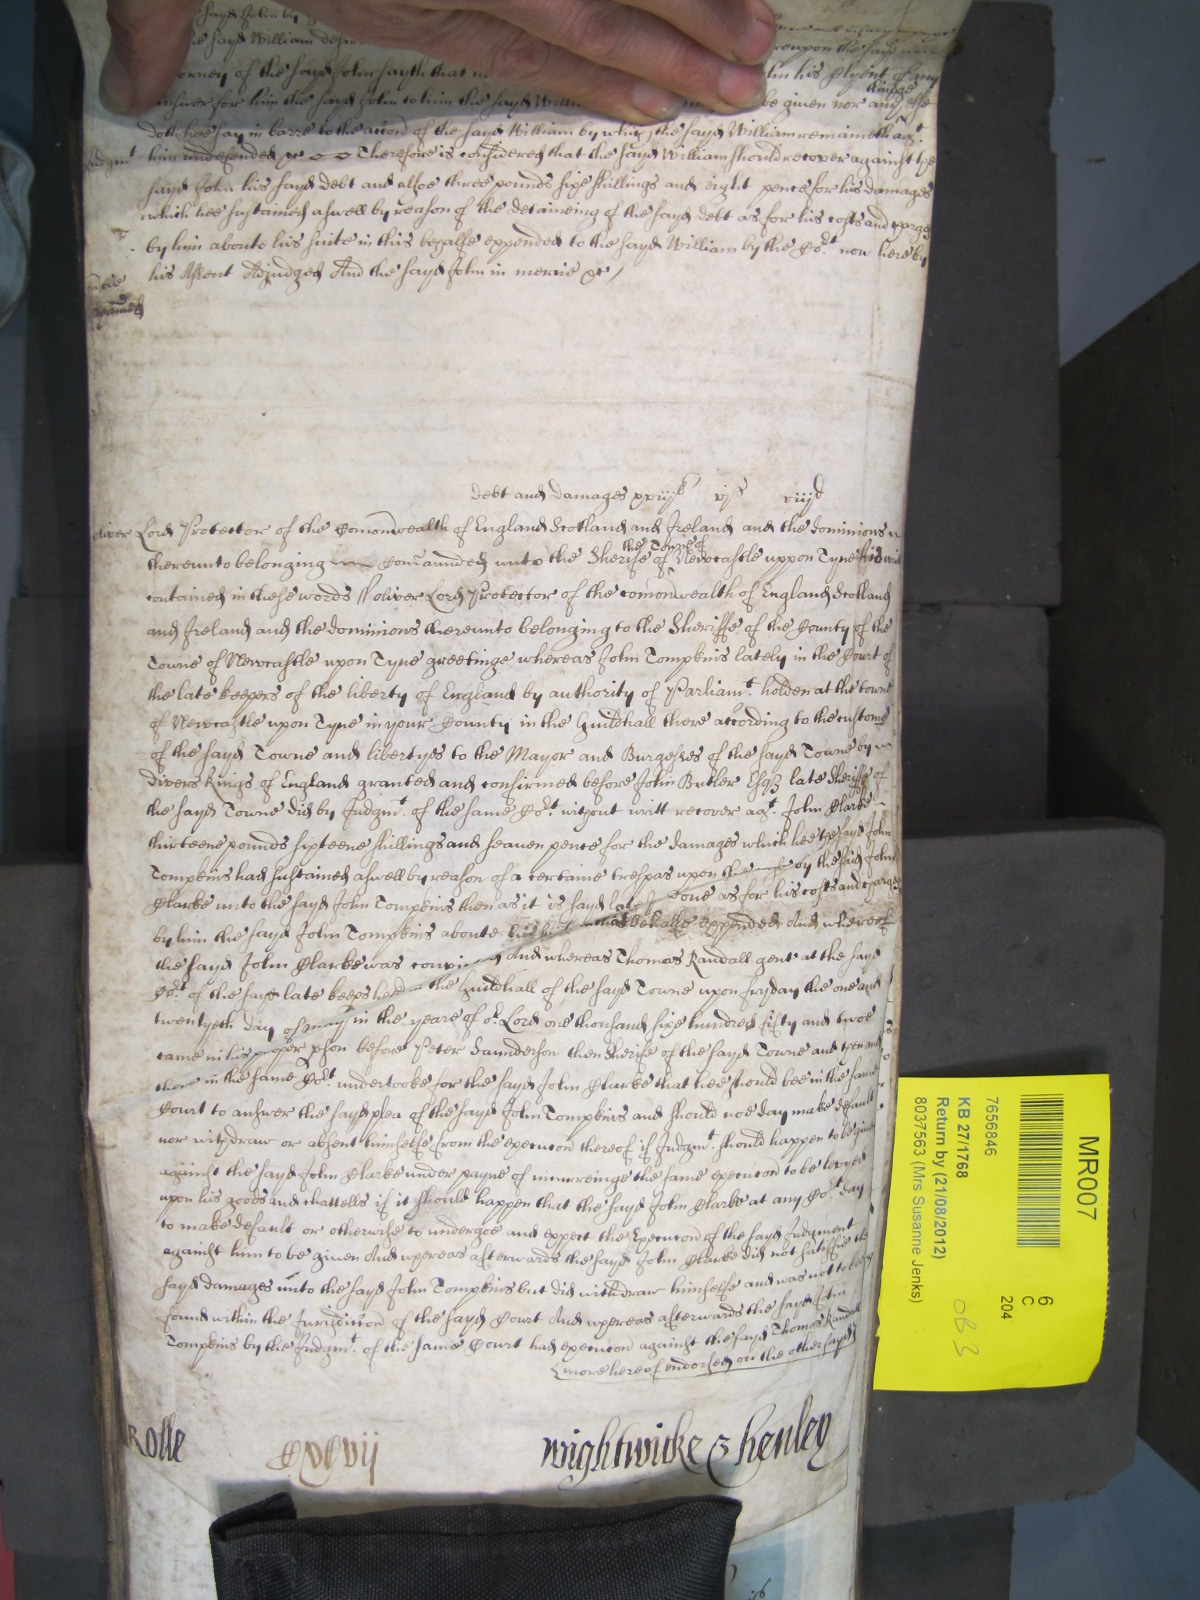 sayd John by
the sayd William
torney of the sayd John sayth that
Answer for him the sayd John to him the sayd Willi be given nor any else
doth hee say in barre to the accon of the sayd William by which the sayd William remaineth agt.
Judgmt him undefended &c Therefore is considered that the sayd William should recover against the
sayd John his sayd debt and alsoe three pounds sixe shillings and eight pence for his damages
which hee sustained aswell by reason of the detaineing of the sayd debt as for his costs and charges
by him aboute his suite in this behalfe expended to the sayd William by the Cort now here by
his Assent Adjudged And the sayd John in mercie &c
debt and damages xxiijli vjs viijd
Oliver Lord Protector of the Comonwealth of England Scotland and Ireland and the dominions
thereunto belonging Comaunded unto the Sherife of the Towne of Newcastle uppon Tyne his writ
contained in these words Oliver Lord Protector of the comonwealth of England Scotland
and Ireland and the dominions thereunto belonging to the Sheriffe of the County of the
Towne of Newcastle upon Tyne greetinge whereas John Tompkins lately in the Court of
the late keepers of the liberty of England by authority of Parliamt. holden at the towne
of Newcastle upon Tyne in your County in the Guildhall there according to the custome
of the sayd Towne and libertyes to the Mayor and Burgesses of the sayd Towne by
divers Kings of England granted and confirmed before John Butler Esqz late Sheriffe of
the sayd Towne did by Judgmt. of the same Cort. without writt recover agt. John Clarke
thirteene pounds sixteene shillings and seaven pence for the damages which hee the sayd John
Tompkins had sustained aswell by reason of a certaine trespas upon the by the said John
Clarke unto the sayd John Tompkins then as it is sayd done as for his costs and charges
by him the sayd John Tompkins aboute his suit in that behalfe expended And whereof
the sayd John Clarke was convict And whereas Thomas Randall gent at the sayd
Cort. of the sayd late keeps held the Guildhall of the sayd Towne upon fryday the one and
twentyeth day of May in the yeare of or. Lord one thousand sixe hundred fifty and twoe
came in his proper pson before Peter Saunderson then Sherife of the sayd Towne and then and
there in the same Cort. undertooke for the sayd John Clarke that hee should bee in the same
Court to answer the sayd plea of the sayd John Tompkins and should noe day make default
nor withdraw or absent himselfe from the execucon thereof if Judgmt. should happen to be given
against the sayd John Clarke under payne of incurreinge the same execucon to be levyed
upon his goods and chattells if it should happen that the sayd John Clarke at any Cort. day
to make default or otherwise to undergoe and expect the Execucon of the sayd Judgment
against him to be given And whereas afterwards the sayd John Clarke did not satisfie the
sayd damages unto the sayd John Tompkins but did withdraw himselfe and was not to bee
found within the Jurisdiccon of the sayd Court And whereas afterwards the sayd John
Tompkins by the Judgmt. of the same Court had execucon against the sayd Thomas Randall
more hereof endorsed on the other syde
Rolle Cxcvij Wightwicke & Henley
MR007
7656846
KB 27/1768
Return by (21/08/2012)
8037563 (Mrs Susanne Jenks)
6
C
204